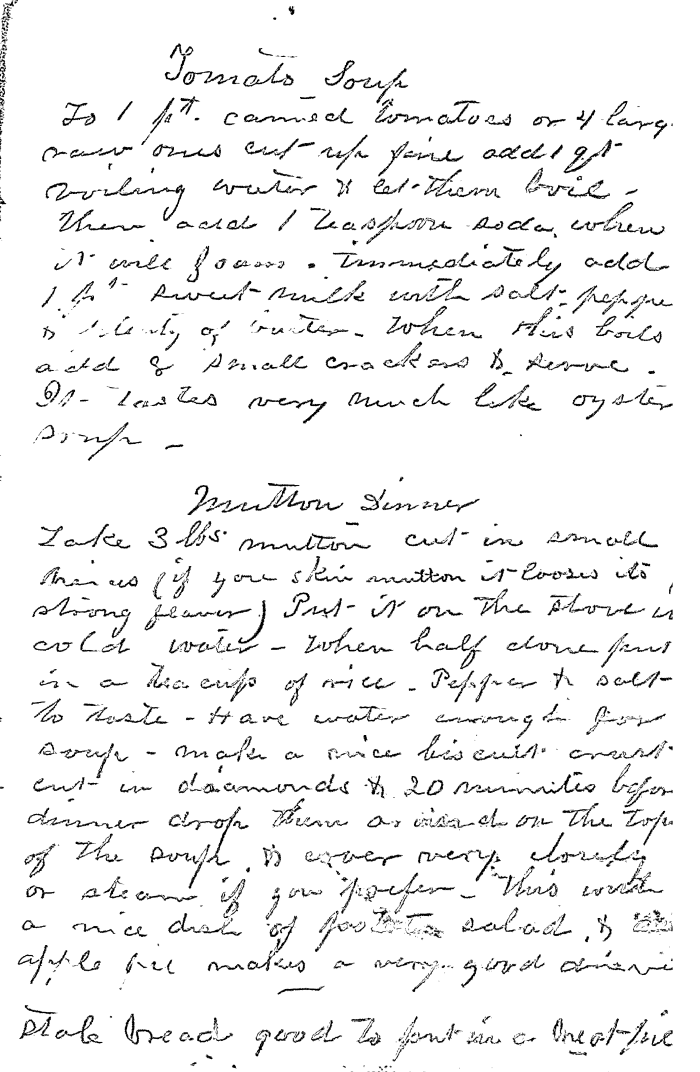 Tomato Soup
To 1 pt. canned tomatoes or 4 larg
raw ones cut up fine add 1 qt
boiling water & let them boil -
Then add 1 teaspoon soda, when
it will foam. Immediately add
1 pt sweet milk with salt, peppe
& plenty of butter - When this boils
add 8 small crackers & serve.
It - tastes very much like oyster
soup -
Mutton Dinner
Take 3 lbs mutton cut in small
(if you skin mutton it looses its
strong flavor) Put it on the stove in
cold water - When half done put
in a tea cup of rice - Pepper & salt
to taste - Have water enough for
soup - make a nice biscuit crust
cut in diamonds & 20 minutes befor
dinner drop them around on the top
of the soup, & cover very closely
or steam if you prefer - This with
a nice dish of potato salad, &
apple pie makes a very good dinne
Stale bread good to put in a meat-pie